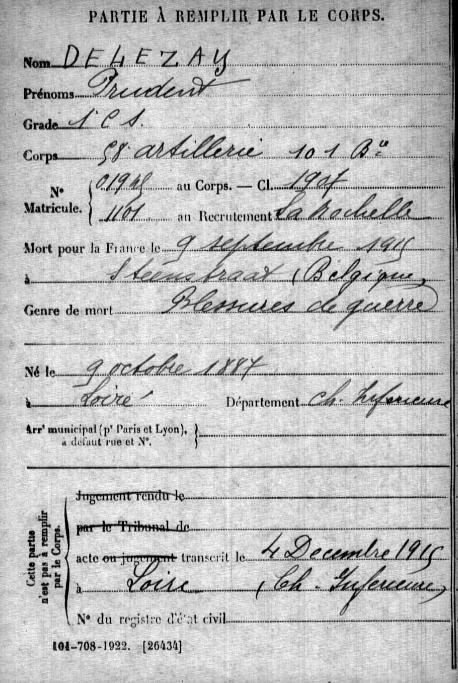 PARTIE À REMPLIR PAR LE CORPS.
Nom DELEZAY
Prénoms Prudent
Grade 1 C S.
Corps 58 artillerie 101 Bie
N° Matricule. { 01945 au Corps. — Cl. 1907
1101 au Recrutement La Rochelle
Mort pour la France le 9 septembre 1915
à Steenstraat (Belgique)
Genre de mort Blessures de guerre
Né le 9 octobre 1887
à Loiré Département Ch. Inférieure
Arrt municipal (pr Paris et Lyon), à défaut rue et N°. }
Cette partie n'est pas à remplir par le Corps.
Jugement rendu le
par le Tribunal de
acte ou jugement transcrit le 4 Decembre 1915
à Loiré (Ch. Inférieure)
N° du registre d'état civil
101-708-1922. [26434]